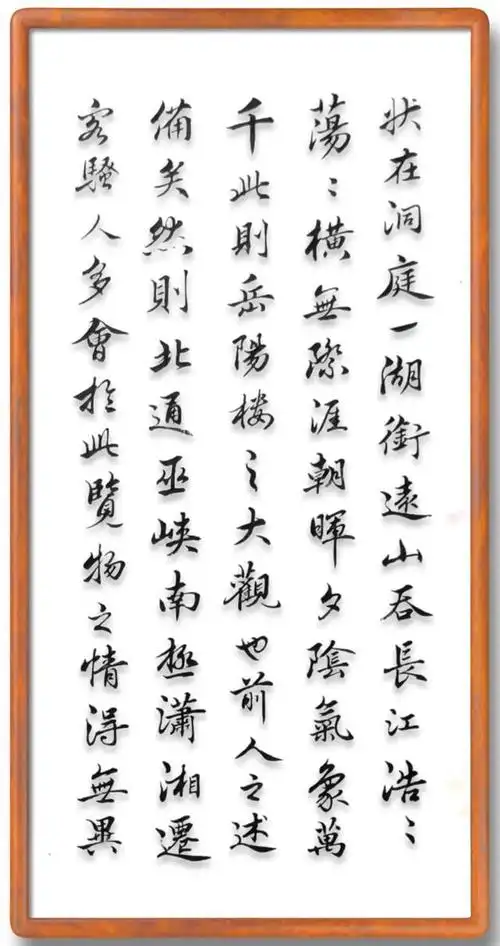 状在洞庭一湖銜遠山吞長江浩〻
蕩〻橫無際涯朝暉夕陰氣象萬
千此則岳陽樓之大觀也前人之述
備矣然則北通巫峽南極瀟湘遷
客騷人多會於此覽物之情得無異